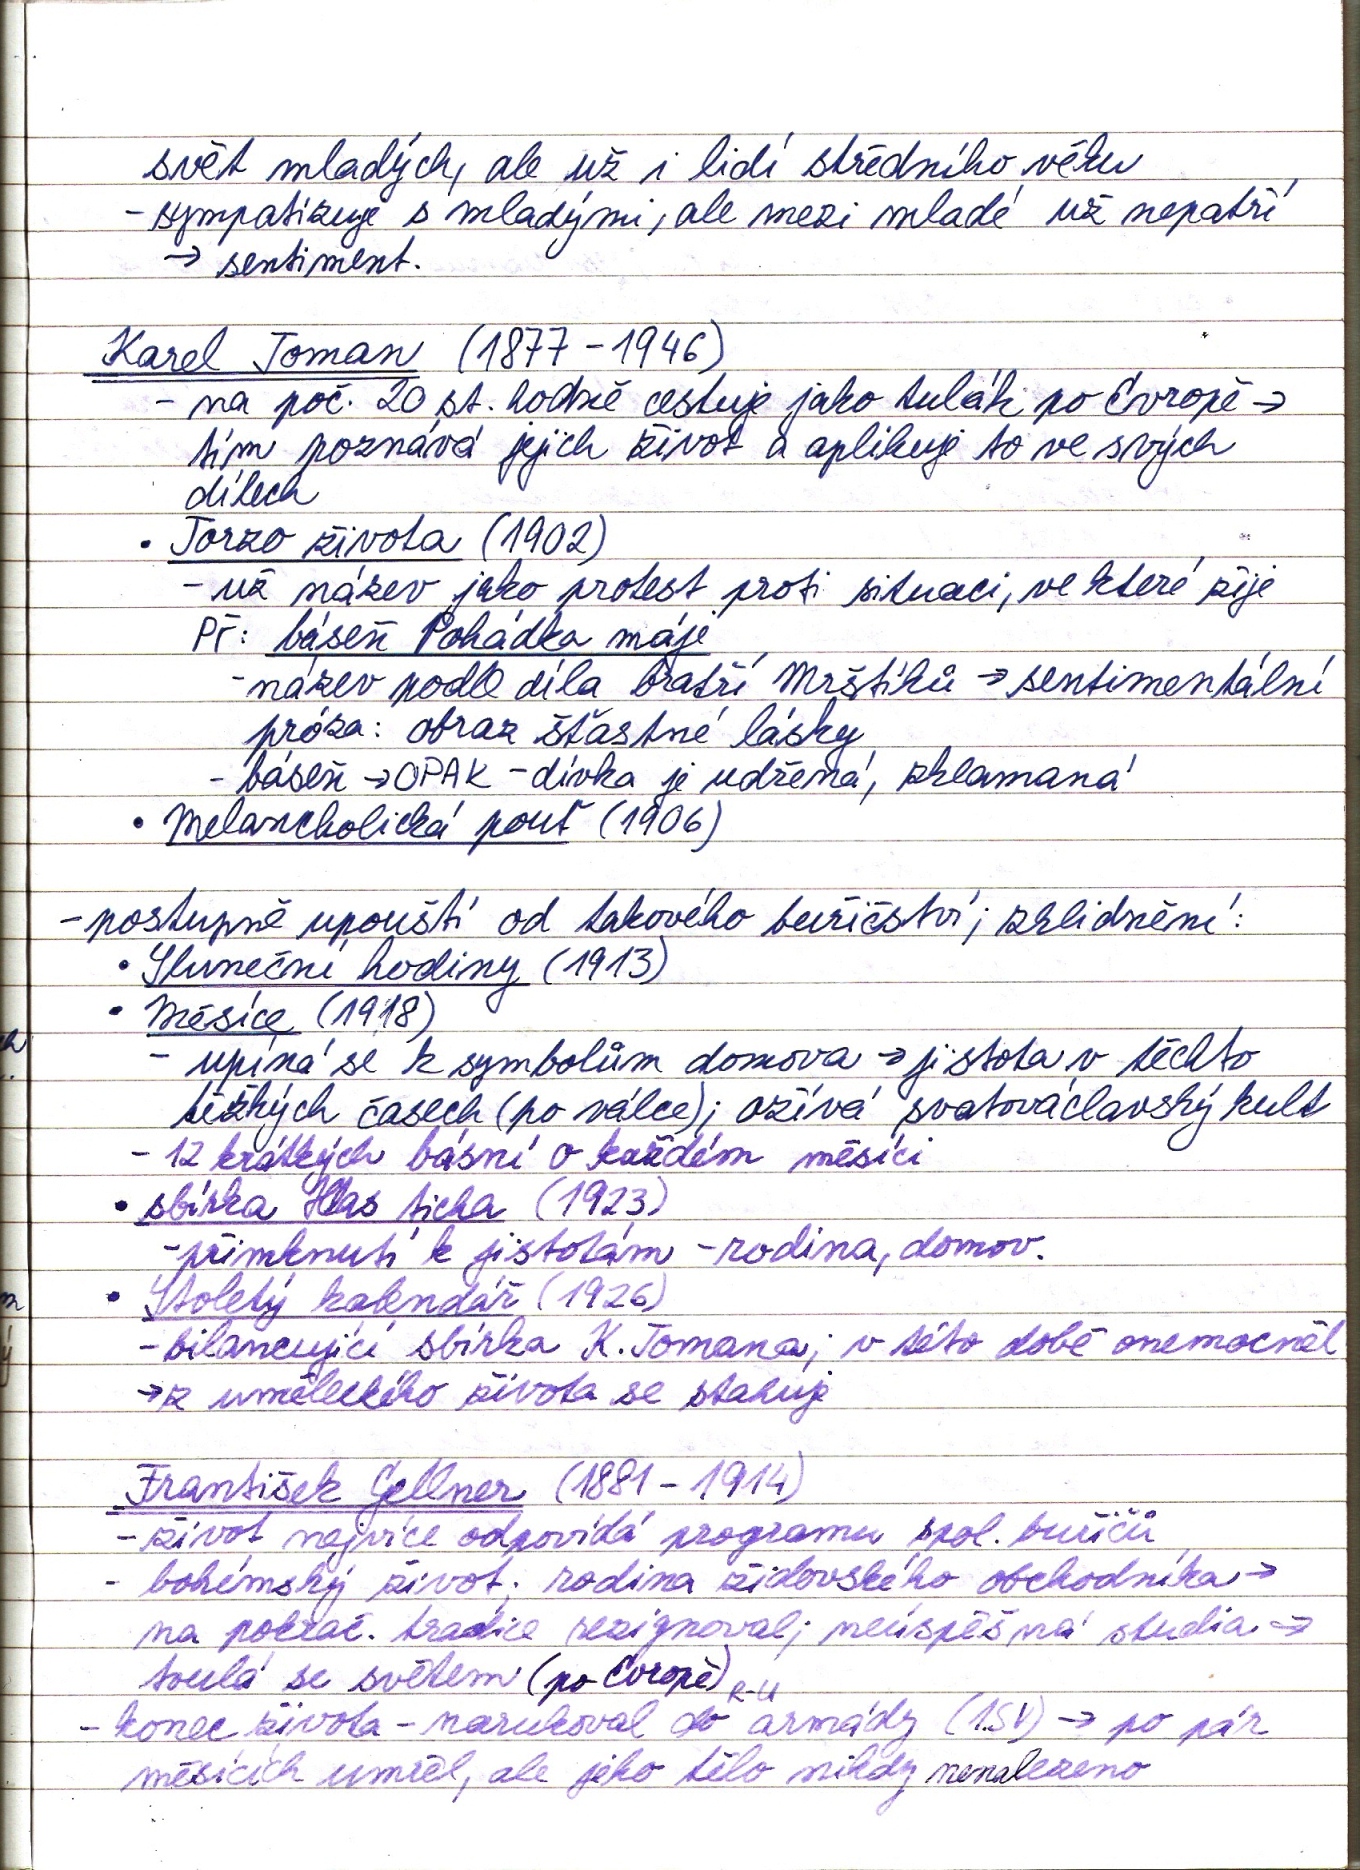 svět mladých, ale už i lidí středního věku
- sympatizuje s mladými, ale mezi mladé už nepatří
→ sentiment.
Karel Toman (1877 - 1946)
- na poč. 20 st. hodně cestuje jako tulák po Evropě →
tím poznává jejich život a aplikuje to ve svých
dílech
• Torzo života (1902)
- už název jako protest proti situaci, ve které žije
Př: báseň Pohádka máje
- název podle díla bratří Mrštíků → sentimentální
próza: obraz šťastné lásky
- báseň → OPAK - dívka je udřená, zklamaná
• Melancholická pouť (1906)
- postupně upouští od takového buřičství; zklidnění:
• Sluneční hodiny (1913)
• Měsíce (1918)
- upíná se k symbolům domova → jistota v těchto
těžkých časech (po válce); ožívá svatováclavský kult
- 12 krátkých básní o každém měsíci
• sbírka Hlas ticha (1923)
- přimknutí k jistotám - rodina, domov.
• Stoletý kalendář (1926)
- bilancující sbírka K. Tomana; v této době onemocněl
→ z uměleckého života se stahuje
František Gellner (1881 - 1914)
- život nejvíce odpovídá programu spol. buřičů
- bohémský život; rodina židovského obchodníka →
na pokrač. tradice rezignoval; neúspěšná studia →
toulá se světem (po Evropě)
R-U
- konec života - narukoval do armády (1SV) → po pár
měsících umřel, ale jeho tělo nikdy nenalezeno